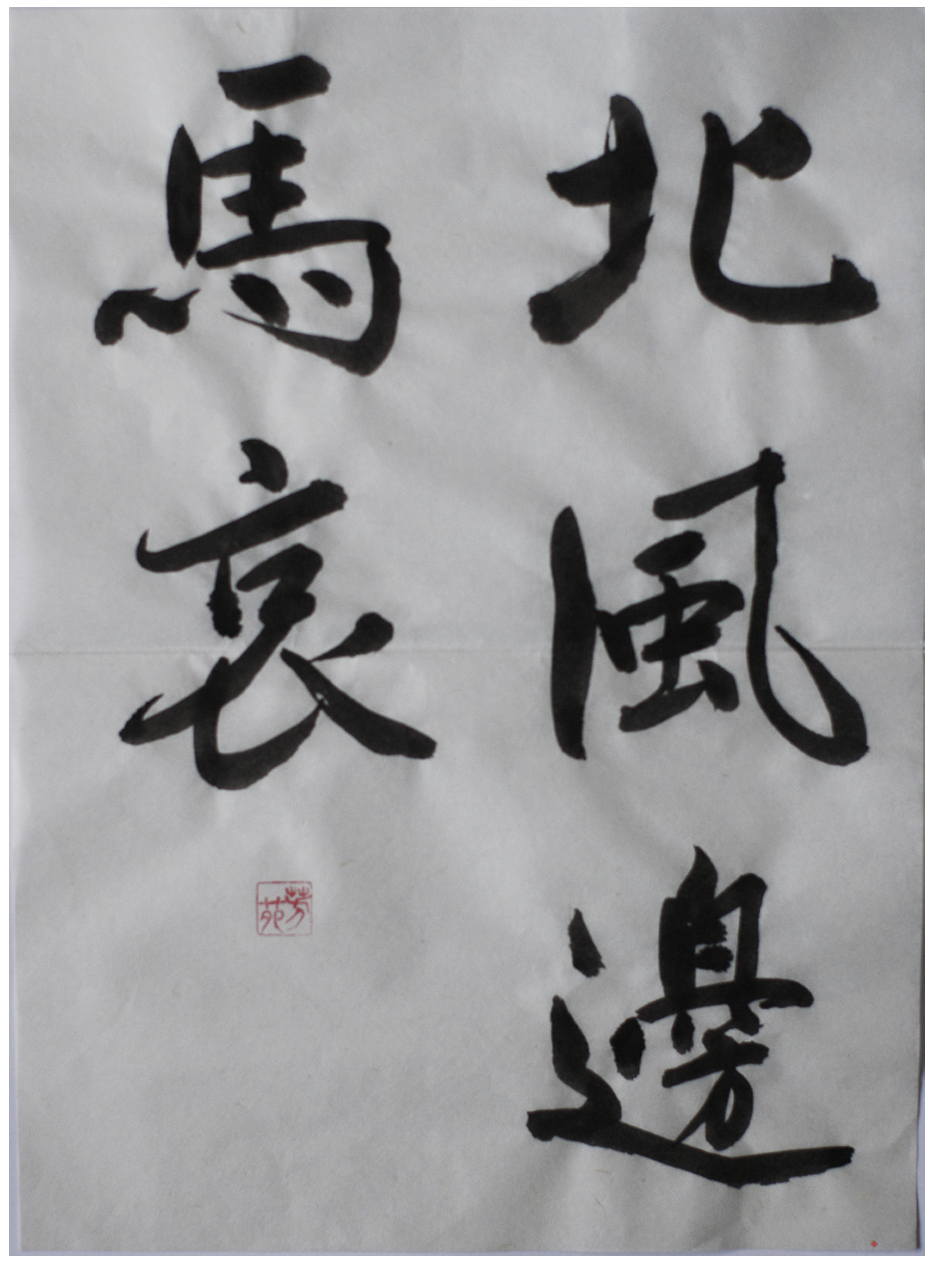 北風邊
馬哀
芳苑